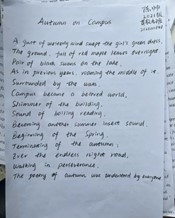 Autumn on Campus
A gust of western wind swept the girl's green dress,
The ground, full of red maple leaves overnight.
Pair of black swans on the lake,
As in previous years, roaming the middle of it.
Surrounded by the wan,
Campus became a beloved world,
Shimmer of the building,
Sound of boiling reading,
Becoming another summer insect sound
Beginning of the Spring,
Terminating of the autumn,
Over the endless night road,
Walking in perseverance,
The poetry of autumn was endeavored by everyone